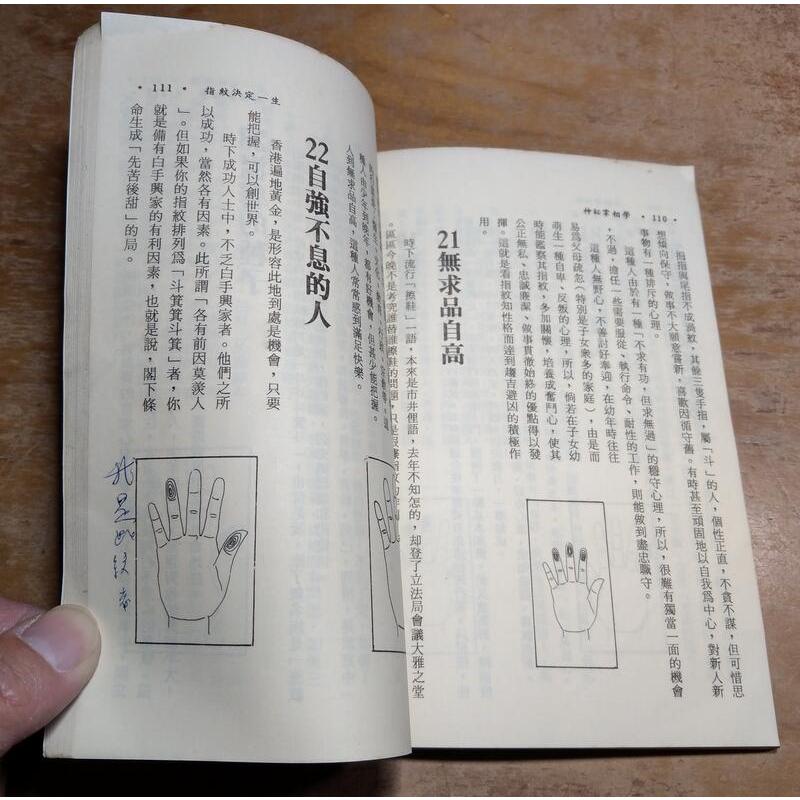 神秘掌相學 • 110 •
拇指與尾指不成渦紋，其餘三隻手指，屬「斗」的人，個性正直，不貪不謀，但可惜思
想傾向保守，做事不大願意嘗新，喜歡因循守舊。有時甚至頑固地以自我為中心，對新人新
事物有一種排斥的心理。
這種人由於有一種「不求有功，但求無過」的穩守心理，所以，很難有獨當一面的機會
，不過，擔任一些需要服從、執行命令、耐性的工作，則能做到盡忠職守。
這種人無野心，不善討好奉迎，在幼年時往往
易為父母疏忽（特別是子女衆多的家庭），由是而
萌生一種自卑、反叛的心理，所以，倘若在子女幼
時能鑑察其指紋，多加關懷，培養成奮鬥心，使其
公正無私、忠誠廉潔、做事貫徹始終的優點得以發
揮。這就是看指紋知性格而達到趨吉避凶的積極作
用。
21無求品自高
時下流行「擦鞋」一語，本來是市井俚語，去年不知怎的，却登了立法局會議大雅之堂
。區區今晚不是考究誰替誰擦鞋的問題，只是
• 111 • 指紋決定一生
種人由少年到晚年，都有好機會，但甚少能把握。
人到無求品自高，這種人常常感到滿足快樂。
22自強不息的人
香港遍地黃金，是形容此地到處是機會，只要
能把握，可以創世界。
時下成功人士中，不乏白手興家者。他們之所
以成功，當然各有因素。此所謂「各有前因莫羨人
」。但如果你的指紋排列為「斗箕箕斗箕」者，你
就是備有白手興家的有利因素，也就是說，閣下條
命生成「先苦後甜」的局。
我是